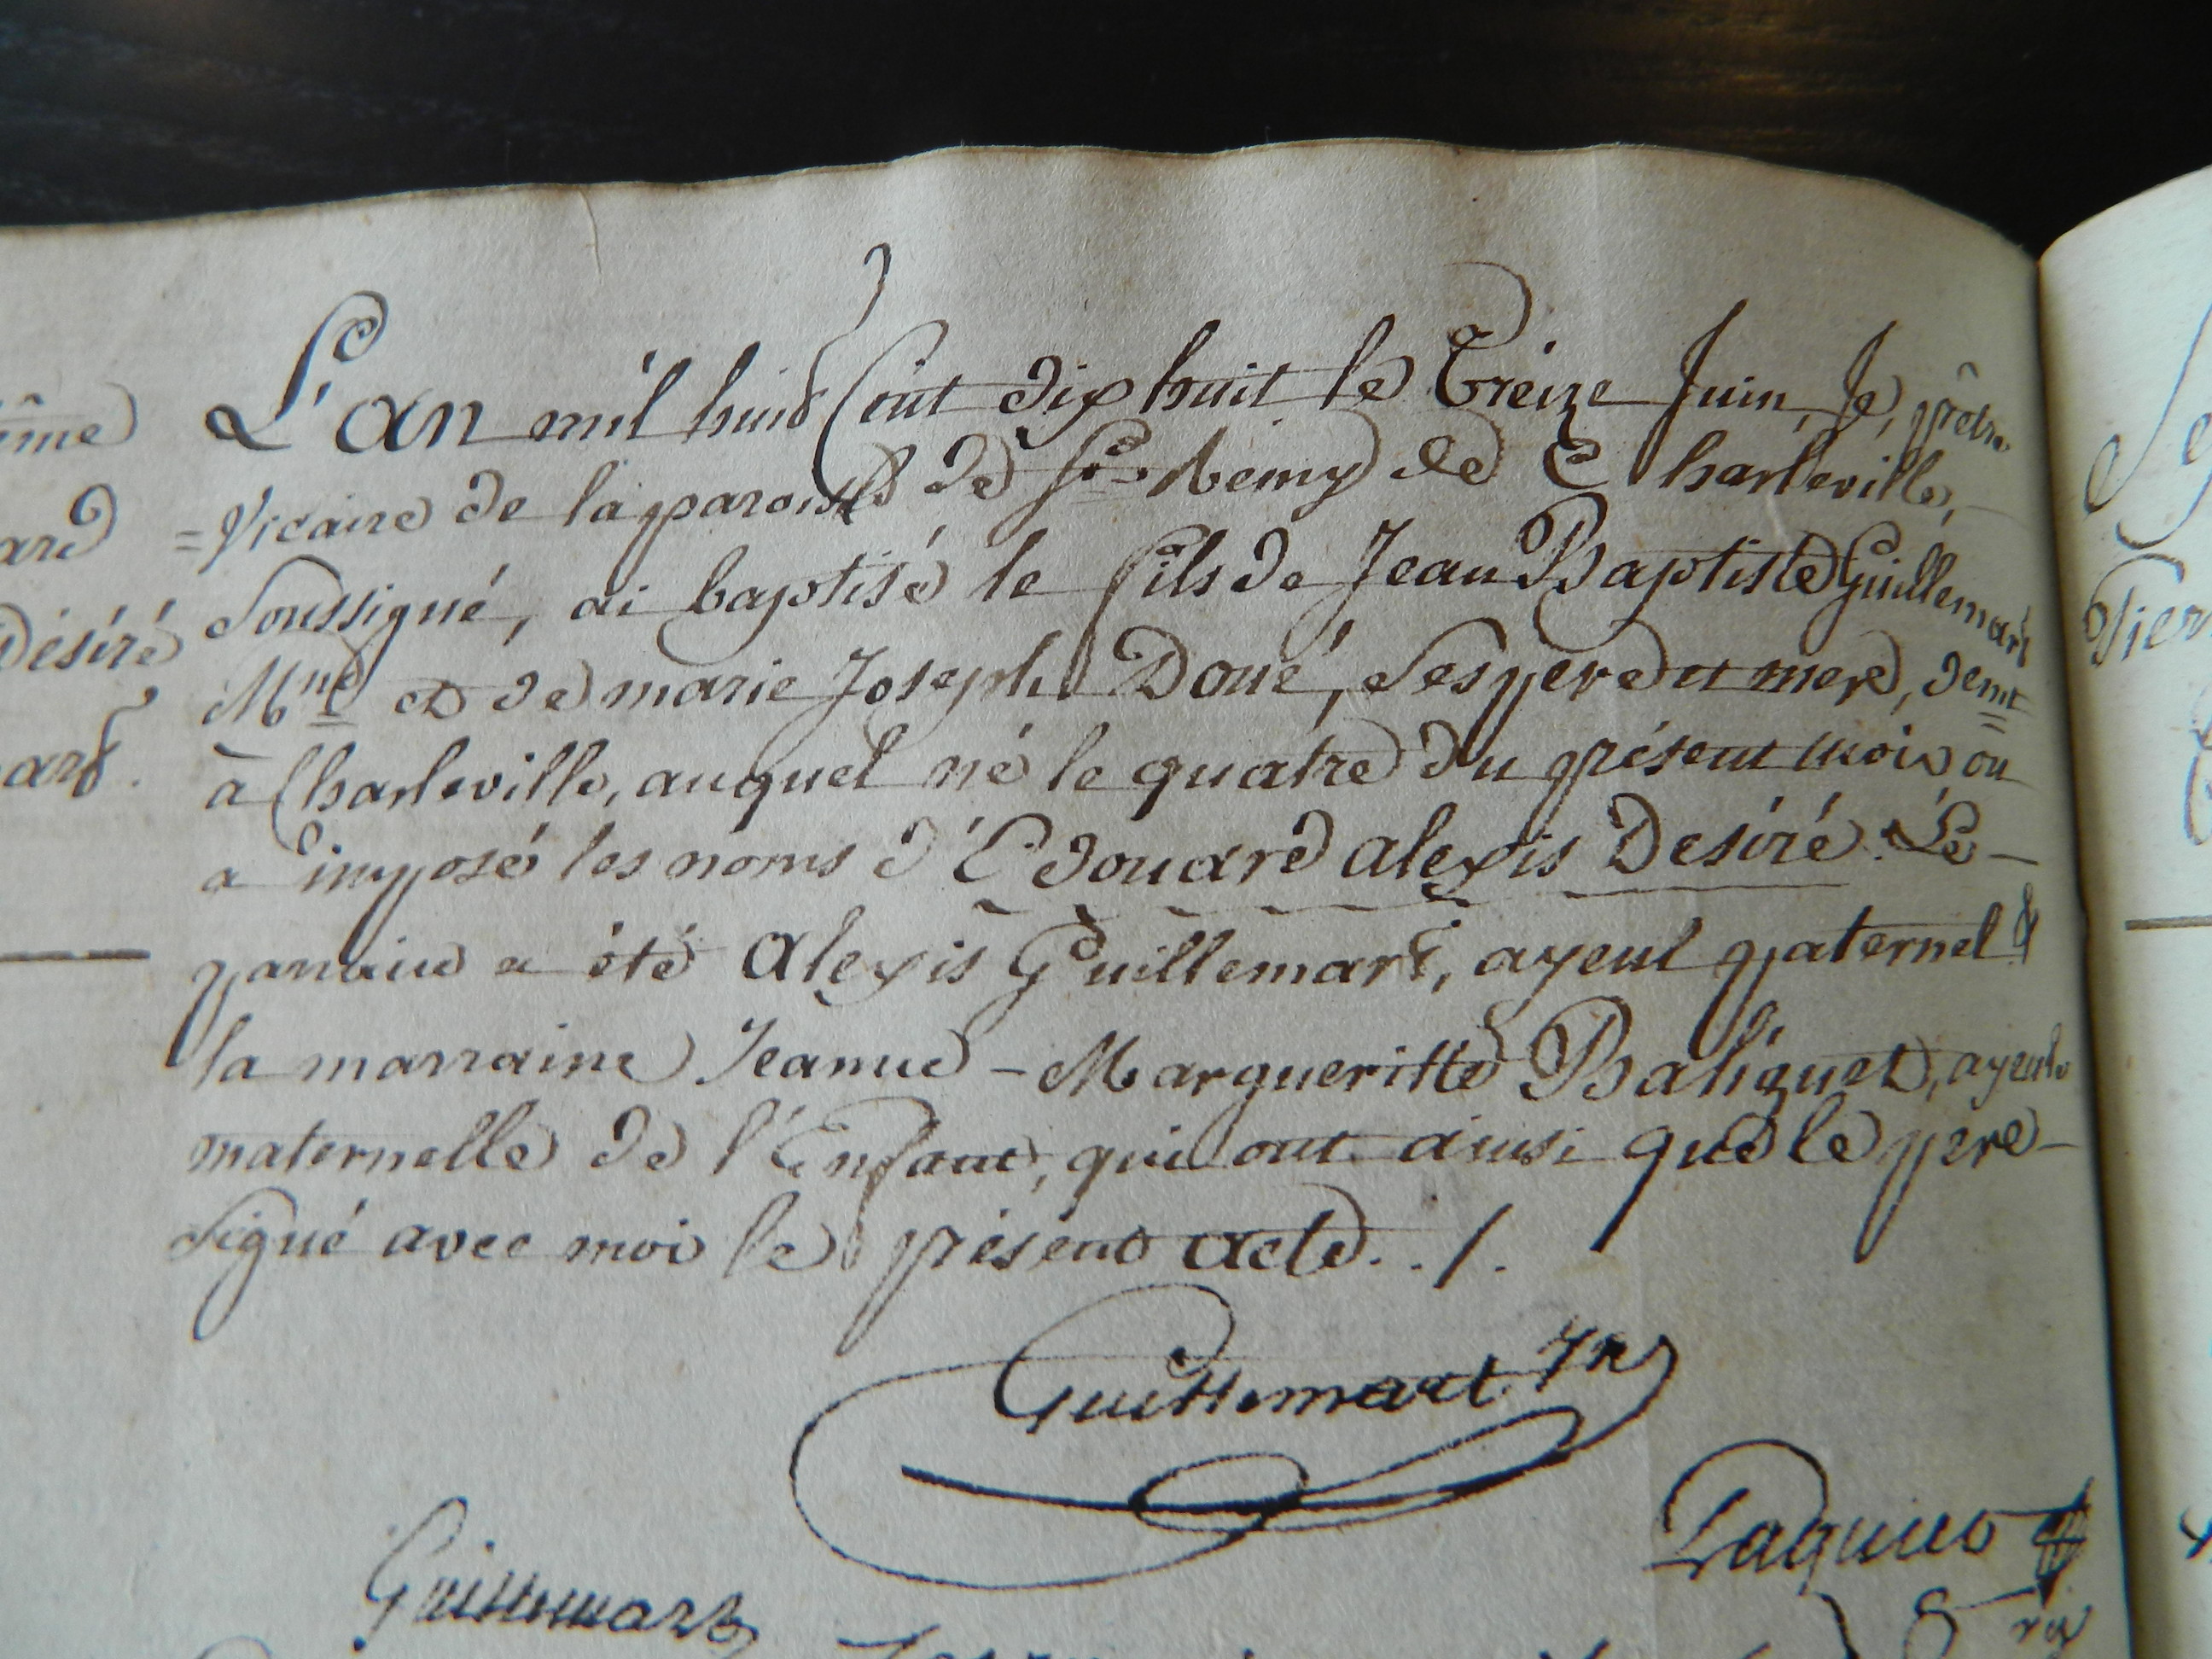 L'an mil huit Cent dix huit le Treize Juin, Je, prêtre
ime
= Vicaire de la paroisse de St Remy de Charleville,
ard
Soussigné, ai baptisé le fils de Jean Baptiste Guillemart
Désiré
Mnd et de marie Joseph Doué, Ses pere et mere, demt
à Charleville, auquel né le quatre du présent mois on
art.
a imposé les noms d'Edouard alexis Desiré. Le
parain a été Alexis Guillemart, ayeul paternel &
la marraine Jeanne - Margueritte Baliquet, ayeule
maternelle de l'Enfant, qui ont ainsi que le pere
Signé avec moi le présent acte. . /.
Guillemart Jn
Guillemart
Paquier